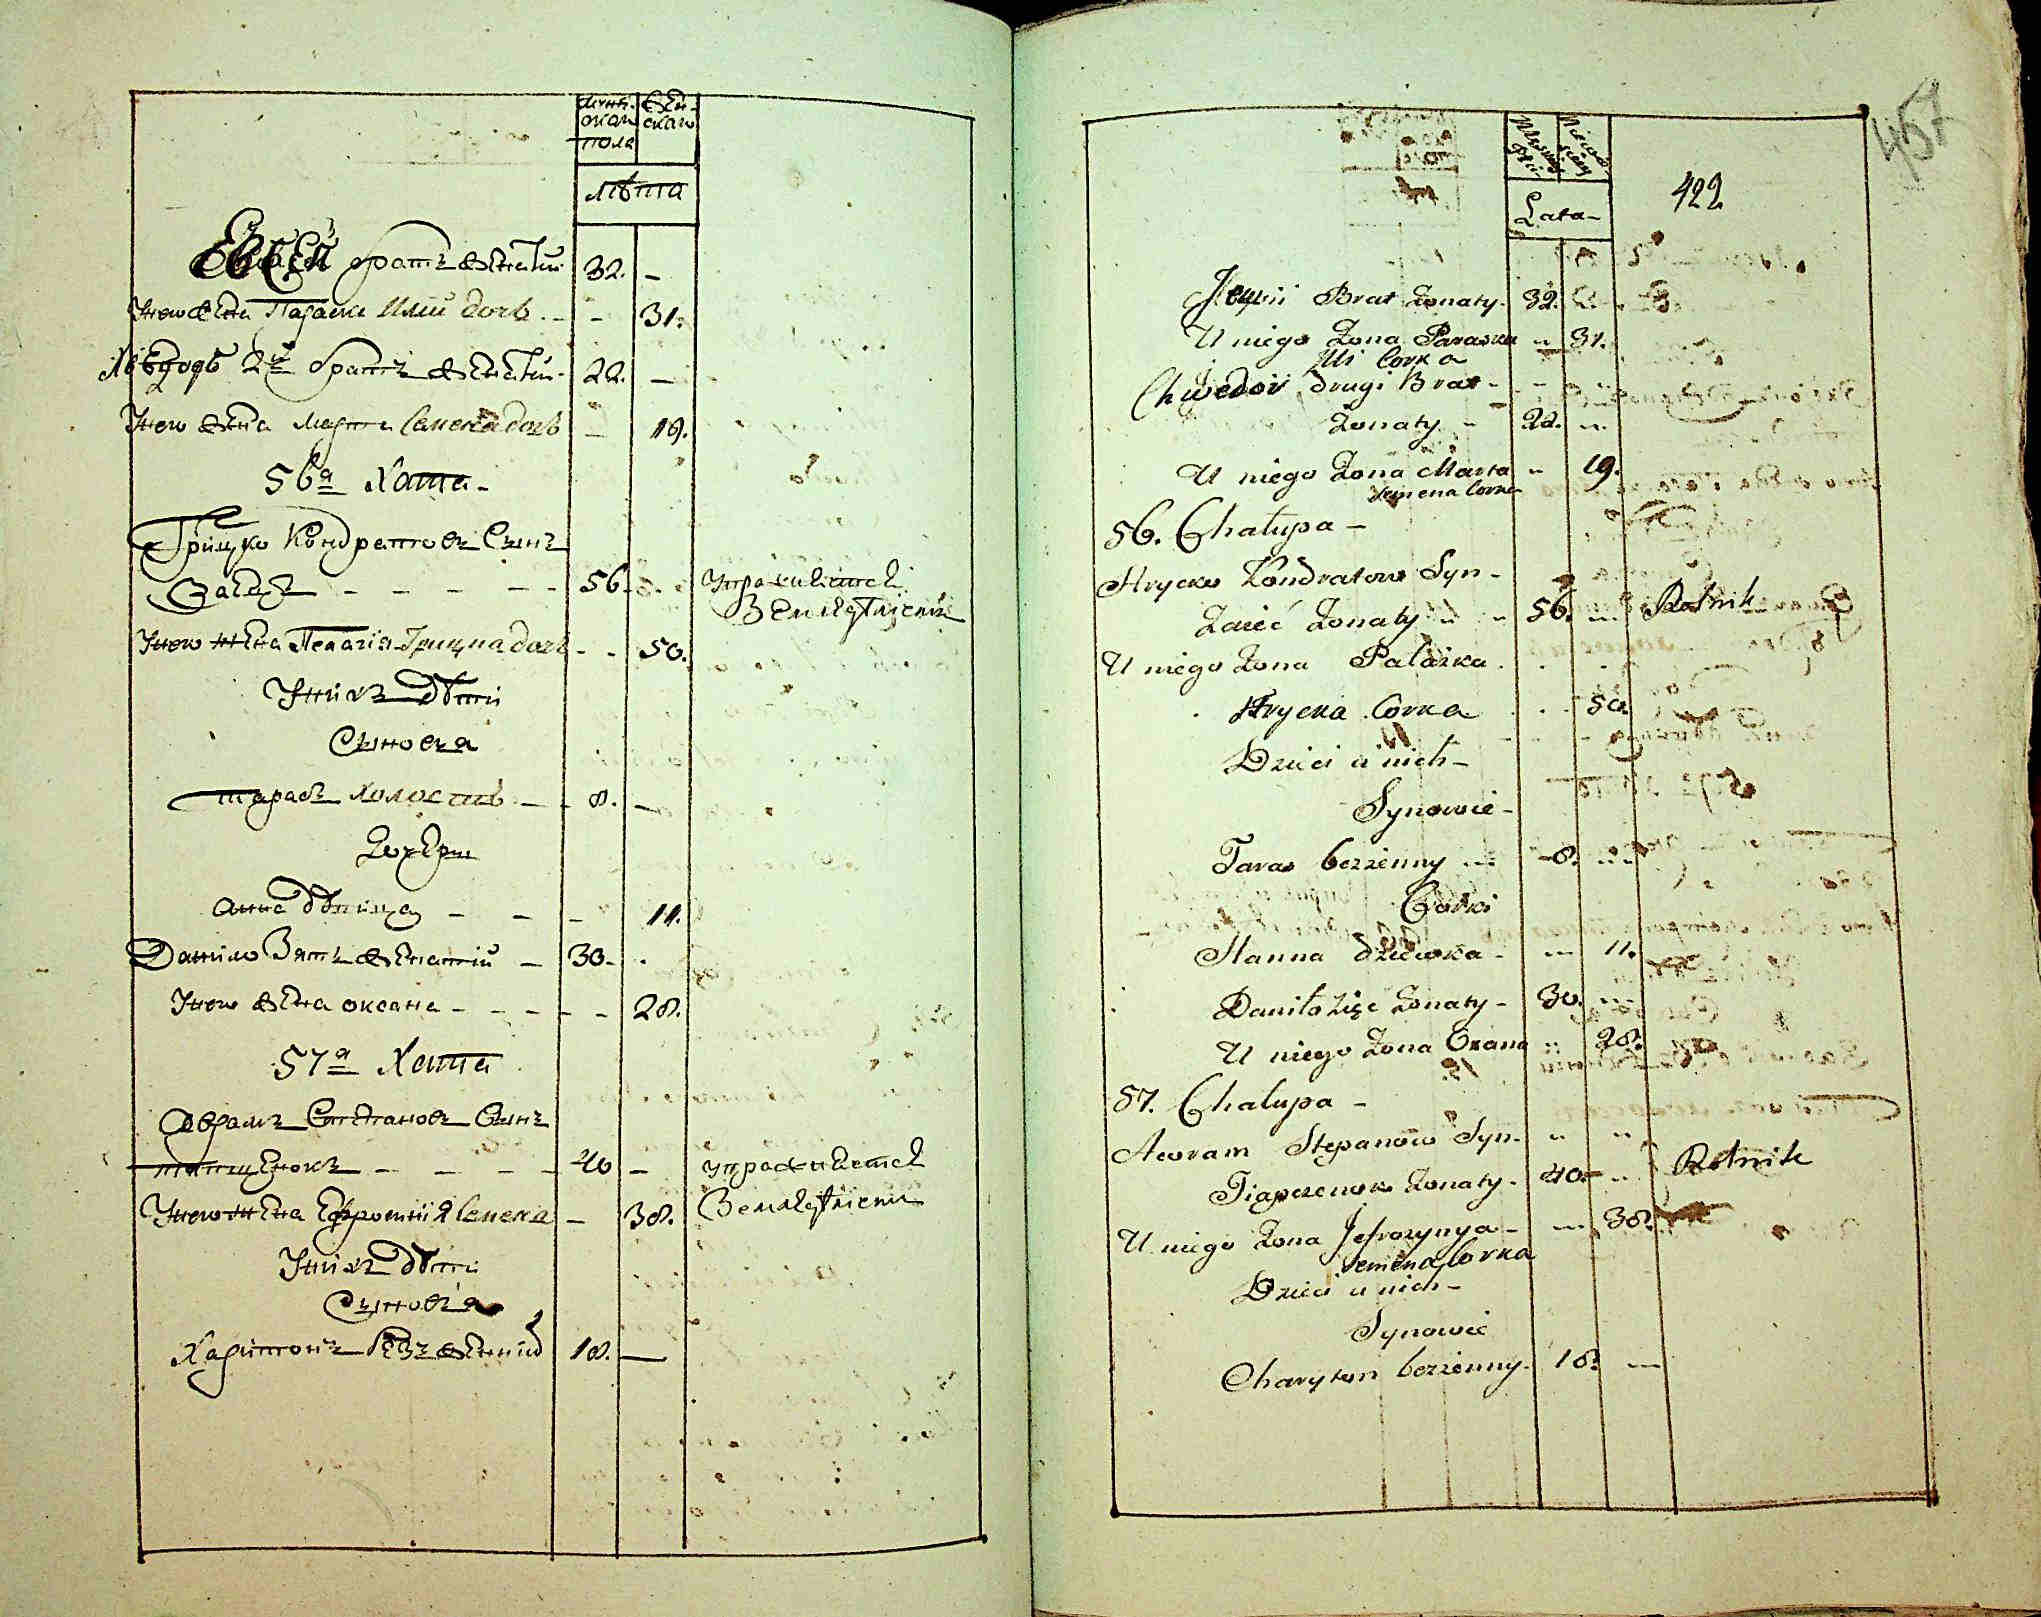 мужескаго женскаго
пола
лѣта
Евсей братъ женатый 32. —
У него жена Параска Илiи дочь - - 31.
Хведоръ 2й братъ женатый - 22. —
У него жена Марта Семена дочь — 19.
56я Хата -
Грицко Кондратовъ Сынъ
Заецъ - - - - - 56. упражняется
Земледѣлiемъ
У него жена Пелагiя Грицка дочь - - 50.
У нихъ дѣти
Сыновья
Тарасъ холостъ — 8. —
Дочери
Анна дѣвица — — — 11.
Данило Зять женатый — 30 -
У него жена Оксана - - - - - 28.
57я Хата
Аврамъ Степановъ Сынъ
- - - - 40 — упражняется
Земледѣлiемъ
У него жена Ефросинiя Семена — 38.
У нихъ дѣти
Сыновья
Харитонъ безженный 18. —
457
422
Lata -
Brat Zonaty. 32.
U niego Zona Paraska " 31.
Ili Corka
Chwedor drugi Brat - -
Zonaty - 22. "
U niego Zona Marta " 19.
Semena Corka
56. Chałupa -
Hrycko Kondratow Syn -
Zaieć Zonaty " " 56. " Rolnik
U niego Zona Palazka . . .
Hrycka Corka . . 50.
Dzieci u nich -
Synowie -
Taras bezzenny " - 8. "
Corki
Hanna dziewka - " 11.
Daniło Zięć Zonaty - 30. "
U niego Zona Oxana " 28.
57. Chałupa -
Awram Stepanow Syn - " "
Zonaty - 40 - " Rolnik
U niego Zona Jefrozynya - " 38.
Semena Corka
Dzieci u nich -
Synowie
Charyton bezzenny - 18. "